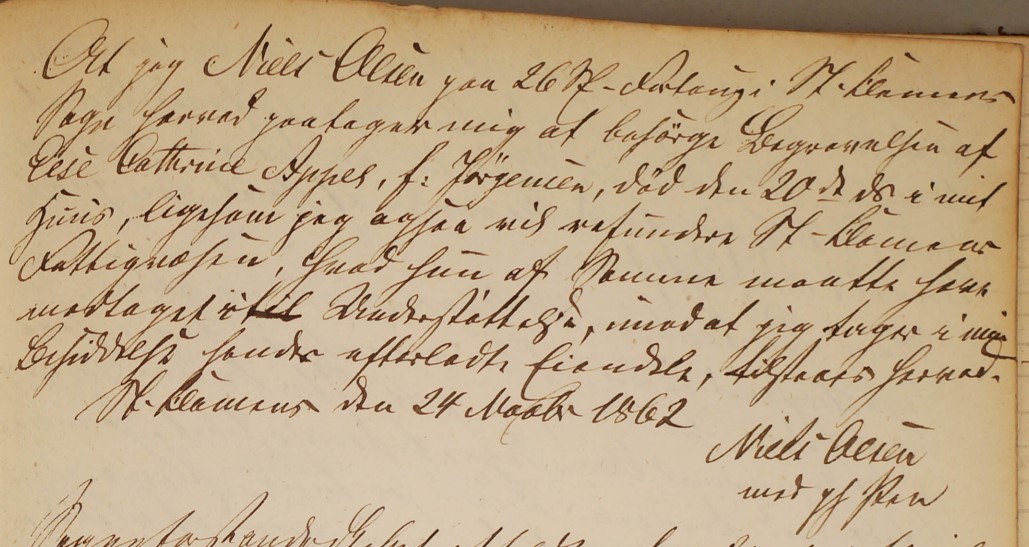 At jeg Niels Olsen paa 26 Sf-Fortoug i St. Clemens
Sogn herved paatager mig at besörge Begravelsen af
Else Cathrine Appel, f: Jörgensen, död den 20de ds i mit
Huus, ligesom jeg ogsaa vil refundere St-Clemens
Fattigvæsen, hvad hun af Samme maatte have
modtaget i Understöttelse, imod at jeg tager i min
Besiddelse hendes efterladte Eiendele, tilstaaes herved.
St. Clemens den 24 Novbr 1862
Niels Olsen
med p f Pen